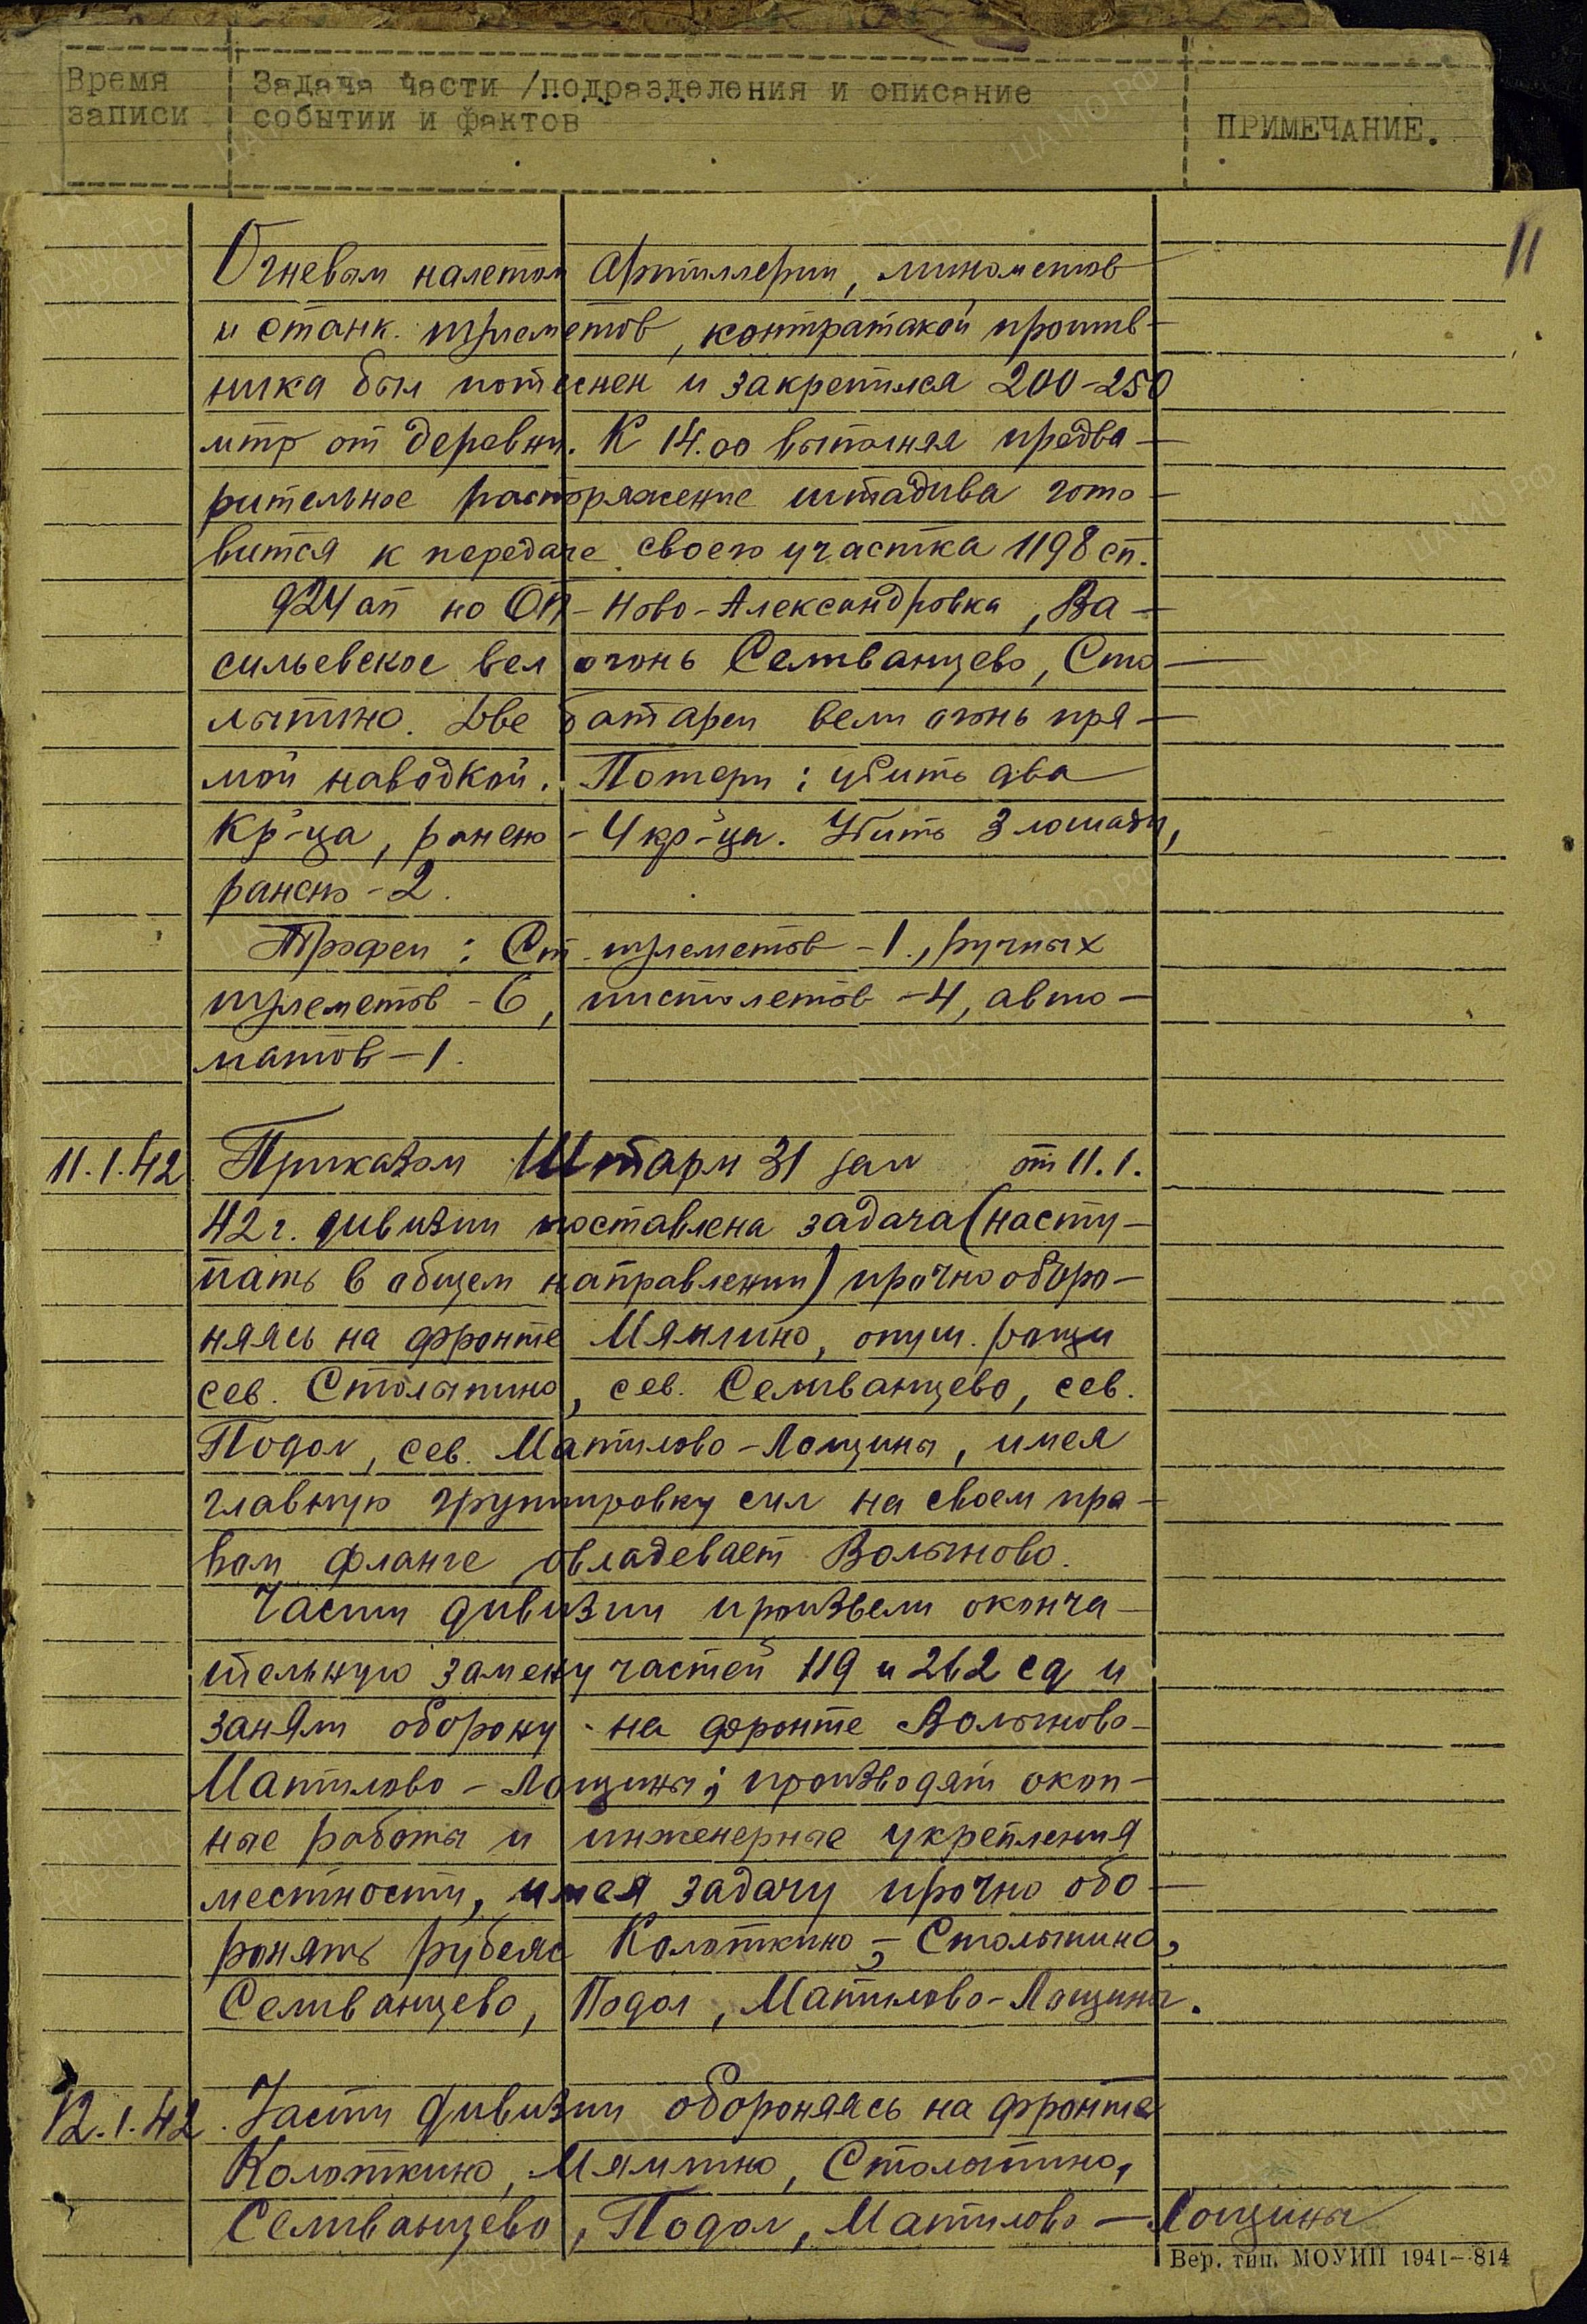 Время записи
Задача части /подразделения и описание событии и фактов
ПРИМЕЧАНИЕ.
11
Огневым налетом артиллерии, минометов
и станк. пулеметов, контратакой против-
ника был потеснен и закрепился 200-250
мтр от деревни. К 14.00 выполняя предва-
рительное распоряжение штадива гото-
вится к передаче своего участка 1198 сп.
924 ап на ОП - Ново-Александровка, Ва-
сильевское вел огонь Селиванцево, Сто-
лыпино. Две батареи вели огонь пря-
мой наводкой. Потери: убито два
кр-ца, ранено - 4 кр-ца. Убито 3 лошади,
ранено - 2.
Трофеи: Ст. пулеметов - 1, ручных
пулеметов - 6, пистолетов - 4, авто-
матов - 1.
11.1.42 Приказом Штарм 31 от 11.1.
42 г. дивизии поставлена задача (насту-
пать в общем направлении) прочно оборо-
няясь на фронте Мямлино, опуш. рощи
сев. Столыпино, сев. Селиванцево, сев.
Подол, сев. Матилово-Лощины, имея
главную группировку сил на своем пра-
вом фланге овладевает Волыново.
Части дивизии произвели оконча-
тельную замену частей 119 и 262 сд и
заняли оборону на фронте Волыново-
Матилово - Лощины; производят окоп-
ные работы и инженерные укрепления
местности, имея задачу прочно обо-
ронять рубеж Колоткино, - Столыпино,
Селиванцево, Подол, Матилово-Лощины.
12.1.42 Части дивизии обороняясь на фронте
Колоткино, Мямлино, Столыпино,
Селиванцево, Подол, Матилово - Лощины
Вер. тип. МОУИП 1941-814